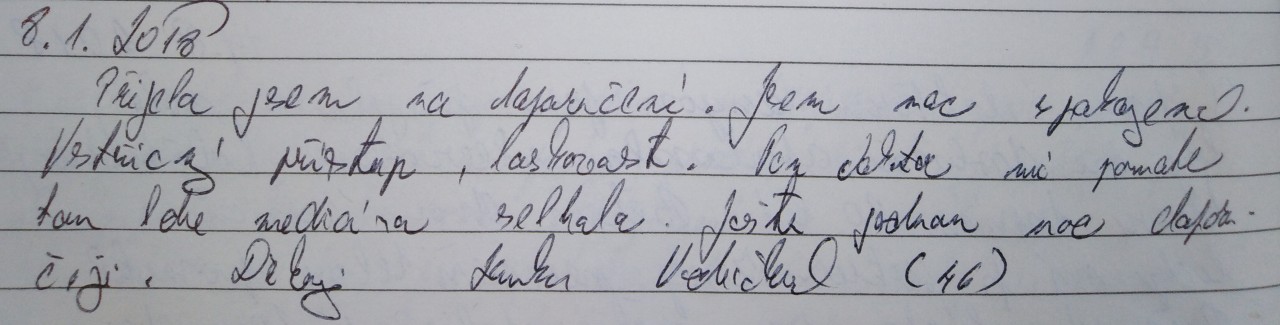 8.1.2018
Přijela jsem na doporučení. Jsem moc spokojená.
Vstřícný přístup, laskavost. Pan doktor mi pomohl
tam kde medicína selhala. Ještě jednou moc doporu-
čuji. Děkuji Lenka (46)